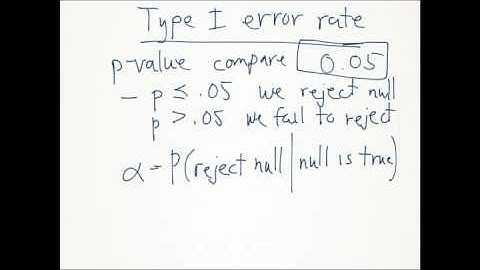 Type I error rate
p-value compare 0.05
- p ≤ .05 we reject null
p > .05 we fail to reject
α = P(reject null | null is true)